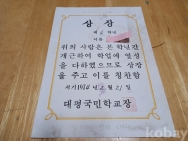 상장
제 학년
이름
위의 사람은 본 학년간
개근하여 학업에 열성
을 다하였으므로 상장
을 주고 이를 칭찬함
서기19 년 2월 21일
태평국민학교장
kobay